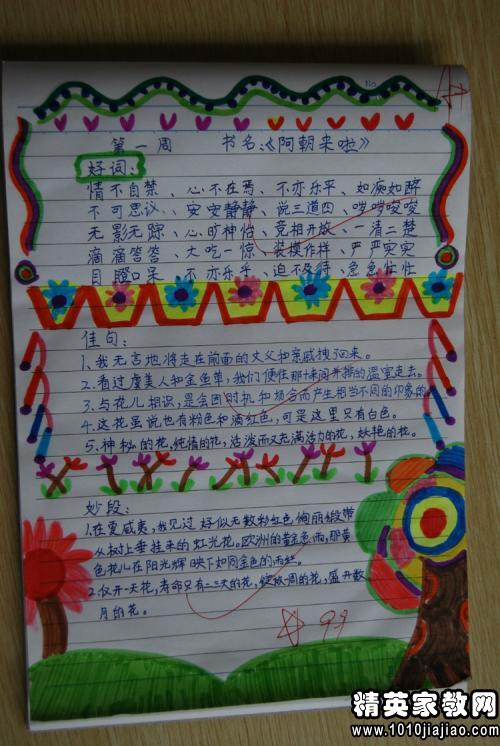 第一周 书名:《阿朝来啦》
好词:
情不自禁、心不在焉、不亦乐乎、如痴如醉
不可思议、安安静静、说三道四、啰啰唆唆
无影无踪、心旷神怡、竞相开放、一清二楚
滴滴答答、大吃一惊、装模作样、严严实实
目瞪口呆、不亦乐乎、迫不及待、急急忙忙
佳句:
1、我无言地将走在前面的丈夫和亲戚拽了回来。
2、看过虞美人和金鱼草,我们便往那十来间并排的温室走去。
3、与花儿相识,是会因时机和场合而产生相当不同的印象的。
4、这花虽说也有粉色和滴红色,可是这里只有白色。
5、神秘的花,纯情的花,活泼而又充满活力的花,妖艳的花。
妙段:
1、在夏威夷,我见过好似无数粉红色绚丽缎带
从树上垂挂下来的红光花。欧洲的黄金色雨,那黄
色花儿在阳光辉映下如同金色的雨丝。
2、仅开一天花,寿命只有二三天的花,绽放一周的花,盛开数
月的花。
99
精英家教网
www.1010jiajiao.com